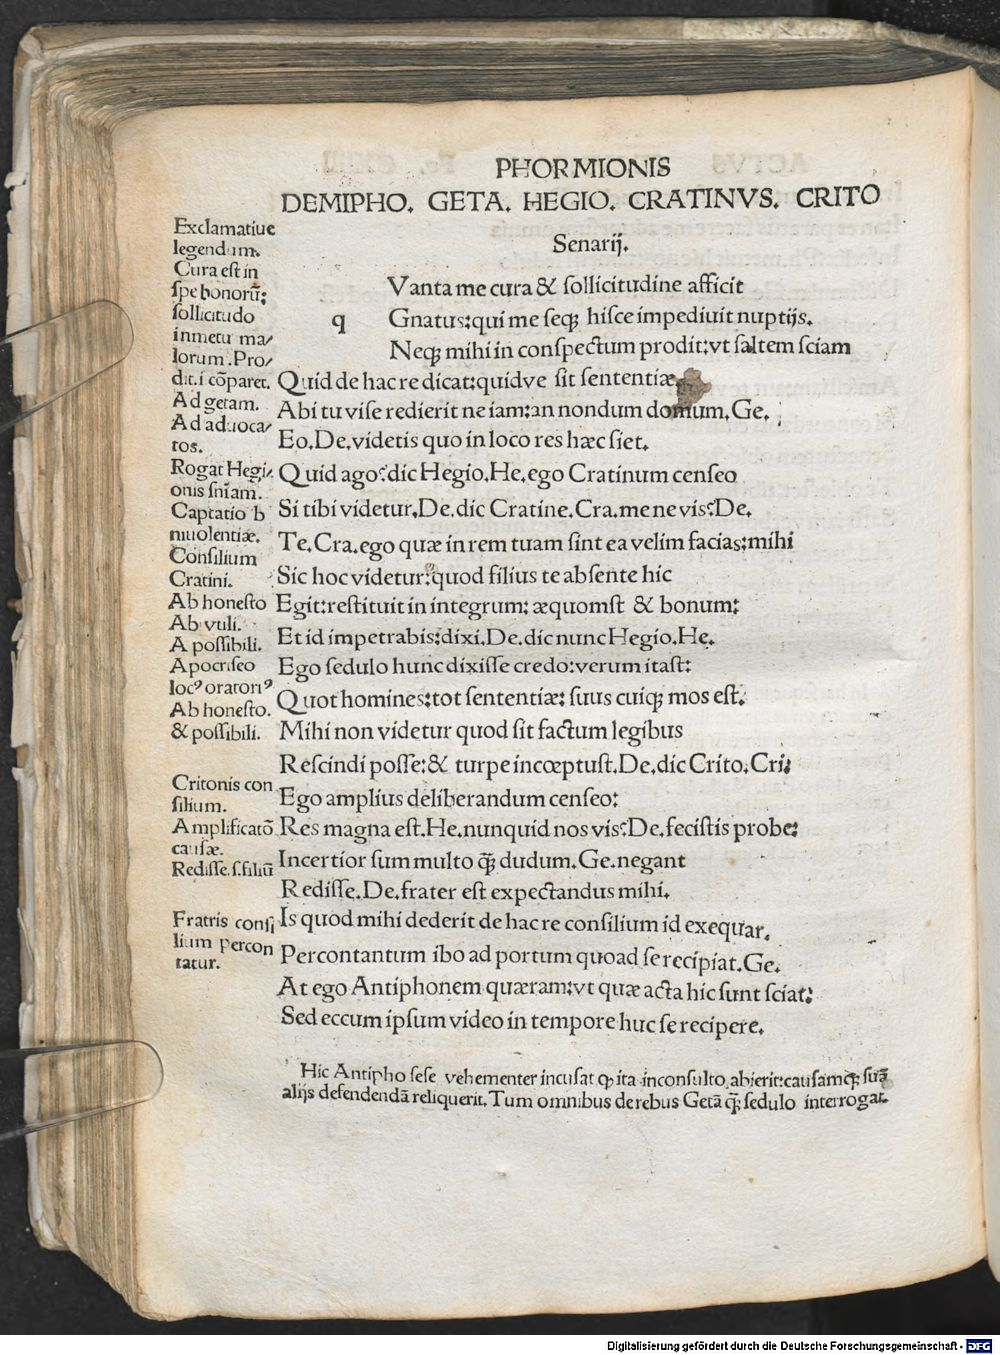 PHORMIONIS
DEMIPHO. GETA. HEGIO. CRATINVS. CRITO
Senarij.
Exclamatiue
legendum.
Cura est in
spe bonorū:
sollicitudo
in metu ma/
lorum. Pro/
dit.i cōparet.
Ad getam.
Ad aduoca/
tos.
Rogat Hegi/
onis sn̄iam.
Captatio b
niuolentiæ.
Consilium
Cratini.
Ab honesto
Ab vuli.
A possibili.
Apocriseo
locꝰ oratoriꝰ
Ab honesto.
& possibili.
Critonis con
silium.
Amplificatō
causæ.
Redisse.s.filiū
Fratris consi
lium percon
tatur.
Vanta me cura & sollicitudine afficit
q Gnatus:qui me seqꝫ hisce impediuit nuptijs.
Neqꝫ mihi in conspectum prodit:vt saltem sciam
Quid de hac re dicat:quidve sit sententiæ
Abi tu vise redierit ne iam:an nondum domum. Ge.
Eo. De. videtis quo in loco res hæc siet.
Quid ago? dic Hegio. He. ego Cratinum censeo
Si tibi videtur. De. dic Cratine. Cra. me ne vis? De.
Te. Cra. ego quæ in rem tuam sint ea velim facias:mihi
Sic hoc videtur:quod filius te absente hic
Egit:restituit in integrum: æquomst & bonum:
Et id impetrabis:dixi. De. dic nunc Hegio. He.
Ego sedulo hunc dixisse credo:verum itast:
Quot homines:tot sententiæ: suus cuiqꝫ mos est.
Mihi non videtur quod sit factum legibus
Rescindi posse:& turpe incœptust. De. dic Crito. Cri:
Ego amplius deliberandum censeo:
Res magna est. He. nunquid nos vis? De. fecistis probe:
Incertior sum multo qꝫ̄ dudum. Ge. negant
Redisse. De. frater est expectandus mihi.
Is quod mihi dederit de hac re consilium id exequar.
Percontantum ibo ad portum quoad se recipiat. Ge.
At ego Antiphonem quæram:vt quæ acta hic sunt sciat:
Sed eccum ipsum video in tempore huc se recipere.
Hic Antipho sese vehementer incusat ꝙ ita inconsulto abierit:causamqꝫ suā
alijs defendendā reliquerit. Tum omnibus de rebus Getā qꝫ̄ sedulo interrogat.
Digitalisierung gefördert durch die Deutsche Forschungsgemeinschaft - DFG